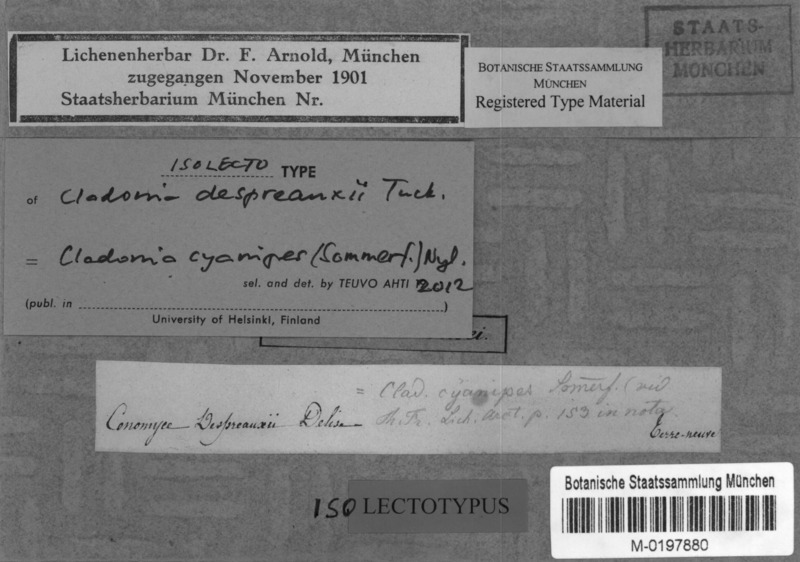 Lichenenherbar Dr. F. Arnold, München
zugegangen November 1901
Staatsherbarium München Nr.
BOTANISCHE STAATSSAMMLUNG
MÜNCHEN
Registered Type Material
STAATS-
HERBARIUM
MÜNCHEN
ISOLECTO TYPE
of Cladonia despreauxii Tuck.
= Cladonia cyanipes (Sommerf.) Nyl.
sel. and det. by TEUVO AHTI 2012
(publ. in )
University of Helsinki, Finland
ei.
= Clad. cyanipes Somerf. (vid
Th. Fr. Lich. Arct. p. 153 in nota
Cenomyce Despreauxii Delise
Terre-neuve
ISO LECTOTYPUS
Botanische Staatssammlung München
M-0197880